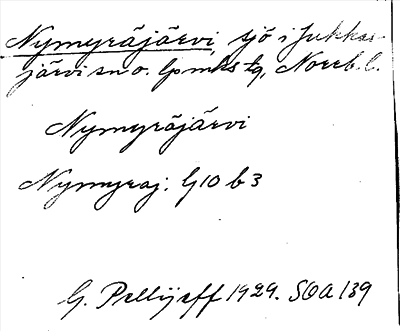 Nymyräjärvi, sjö i Jukkas-
järvi sn o. lpmks tg, Norrb. l.
Nymyräjärvi
Nymyraj: G10 b 3
G. Pellijeff 1929. SOA 139